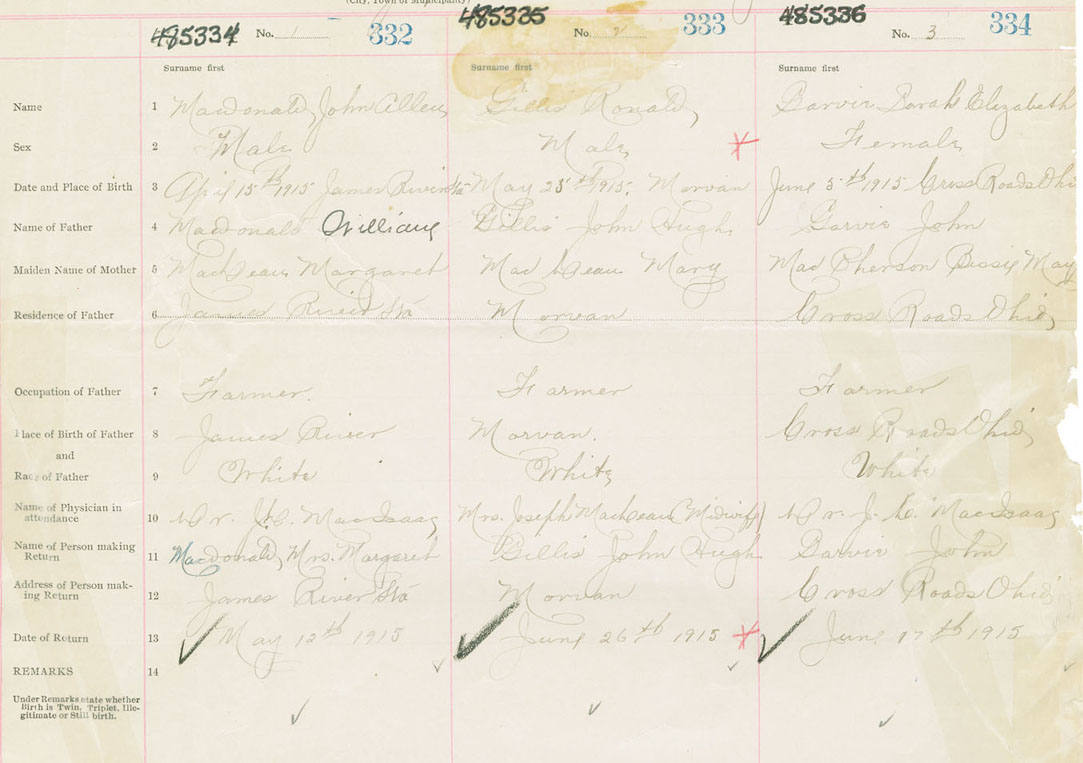 (City, Town or Municipality)
485334 No. 1 332 485335 No. 2 333 485336 No. 3 334
Surname first Surname first Surname first
Name 1 Macdonald, John Allen Gillis Ronald, Garvie Sarah Elizabeth
Sex 2 Male Male Female
Date and Place of Birth 3 April 15th 1915 James River Sta May 25th 1915. Morvan June 5th 1915 Cross Roads Ohio
Name of Father 4 Macdonald William Gillis John Hugh, Garvie John
Maiden Name of Mother 5 MacLean, Margaret MacLean Mary MacPherson Bissie May
Residence of Father 6 James River Sta Morvan Cross Roads Ohio,
Occupation of Father 7 Farmer. Farmer Farmer
Place of Birth of Father 8 James River Morvan. Cross Roads Ohio,
and
Race of Father 9 White White White
Name of Physician in
attendance 10 Dr. J.C. MacIsaac Mrs. Joseph MacLean (Midwife) Dr. J. C. MacIsaac
Name of Person making
Return 11 Macdonald, Mrs. Margaret Gillis John Hugh Garvie John
Address of Person mak-
ing Return 12 James River Sta Morvan Cross Roads Ohio
Date of Return 13 May 12th 1915 June 26th 1915 June 17th 1915
REMARKS 14
Under Remarks state whether
Birth is Twin, Triplet, Ille-
gitimate or Still birth.